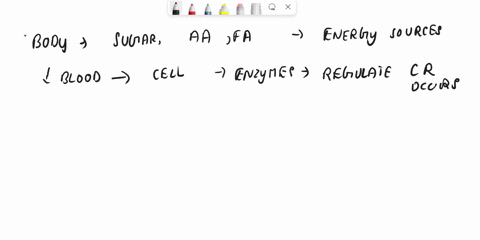 BODY → SUGAR, AA, FA → ENERGY SOURCES
↓ BLOOD → CELL → ENZYMES → REGULATE CR
OCCURS